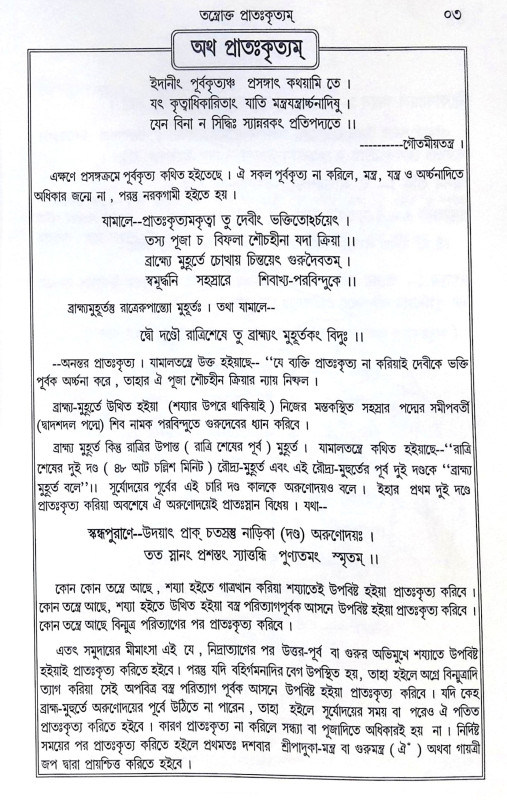 তন্ত্রোক্ত প্রাতঃকৃত্যম্ ০৩
অথ প্রাতঃকৃত্যম্
ইদানীং পূর্বকৃত্যঞ্চ প্রসঙ্গাৎ কথয়ামি তে ।
যৎ কৃত্বাধিকারিতাং যাতি মন্ত্রযন্ত্রার্চ্চনাদিযু ।
যেন বিনা ন সিদ্ধিঃ স্যান্নরকং প্রতিপদ্যতে ।।
----------গৌতমীয়তন্ত্র ।
এক্ষণে প্রসঙ্গক্রমে পূর্বকৃত্য কথিত হইতেছে । ঐ সকল পূর্বকৃত্য না করিলে, মন্ত্র, যন্ত্র ও অর্চ্চনাদিতে
অধিকার জন্মে না , পরন্তু নরকগামী হইতে হয় ।
যামালে--প্রাতঃকৃত্যমকৃত্বা তু দেবীং ভক্তিতোঽর্চয়েৎ ।
তস্য পূজা চ বিফলা শৌচহীনা যদা ক্রিয়া ।।
ব্রাহ্ম্যে মুহূর্তে চোত্থায় চিন্তয়েৎ গুরুদৈবতম্ ।
স্বমূর্দ্ধনি সহস্রারে শিবাখ্য-পরবিন্দুকে ।।
ব্রাহ্ম্যমুহূর্তন্তু রাত্রেরুপান্ত্যো মুহূর্তঃ । তথা যামালে--
দ্বৌ দণ্ডৌ রাত্রিশেষে তু ব্রাহ্ম্যং মুহূর্তকং বিদুঃ ।।
--অনন্তর প্রাতঃকৃত্য । যামালতন্ত্রে উক্ত হইয়াছে-- ‘‘যে ব্যক্তি প্রাতঃকৃত্য না করিয়াই দেবীকে ভক্তি
পূর্বক অর্চ্চনা করে , তাহার ঐ পূজা শৌচহীন ক্রিয়ার ন্যায় নিষ্ফল ।
ব্রাহ্ম্য-মুহূর্তে উত্থিত হইয়া (শয্যার উপরে থাকিয়াই ) নিজের মস্তকস্থিত সহস্রার পদ্মের সমীপবর্তী
(দ্বাদশদল পদ্মে) শিব নামক পরবিন্দুতে গুরুদেবের ধ্যান করিবে ।
ব্রাহ্ম্য মুহূর্ত কিন্তু রাত্রির উপান্ত ( রাত্রি শেষের পূর্ব ) মুহূর্ত । যামালতন্ত্রে কথিত হইয়াছে--‘‘রাত্রি
শেষের দুই দণ্ড ( ৪৮ আট চল্লিশ মিনিট ) রৌদ্র্য-মুহূর্ত এবং এই রৌদ্র্য-মুহূর্তের পূর্ব দুই দণ্ডকে ‘‘ব্রাহ্ম্য
মুহূর্ত বলে’’।। সূর্যোদয়ের পূর্বের এই চারি দণ্ড কালকে অরুণোদয়ও বলে । ইহার প্রথম দুই দণ্ডে
প্রাতঃকৃত্য করিয়া অবশেষে ঐ অরুণোদয়েই প্রাতঃস্নান বিধেয় । যথা--
স্কন্ধপুরাণে--উদয়াৎ প্রাক্ চতস্রস্তু নাড়িকা (দণ্ড) অরুণোদয়ঃ ।
তত স্নানং প্রশস্তং স্যাত্তদ্ধি পুণ্যতমং স্মৃতম্ ।।
কোন কোন তন্ত্রে আছে , শয্যা হইতে গাত্রত্থান করিয়া শয্যাতেই উপবিষ্ট হইয়া প্রাতঃকৃত্য করিবে ।
কোন তন্ত্রে আছে, শয্যা হইতে উত্থিত হইয়া বস্ত্র পরিত্যাগপূর্বক আসনে উপবিষ্ট হইয়া প্রাতঃকৃত্য করিবে ।
কোন তন্ত্রে আছে বিন্মুত্র পরিত্যাগের পর প্রাতঃকৃত্য করিবে ।
এতৎ সমুদায়ের মীমাংসা এই যে , নিদ্রাত্যাগের পর উত্তর-পূর্ব বা গুরুর অভিমুখে শয্যাতে উপবিষ্ট
হইয়াই প্রাতঃকৃত্য করিতে হইবে। পরন্তু যদি বহির্গমনাদির বেগ উপস্থিত হয়, তাহা হইলে অগ্রে বিন্মুত্রাদি
ত্যাগ করিয়া সেই অপবিত্র বস্ত্র পরিত্যাগ পূর্বক আসনে উপবিষ্ট হইয়া প্রাতঃকৃত্য করিবে । যদি কেহ
ব্রাহ্ম-মুহূর্তে অরুণোদয়ের পূর্বে উঠিতে না পারেন , তাহা হইলে সূর্যোদয়ের সময় বা পরেও ঐ পতিত
প্রাতঃকৃত্য করিতে হইবে । কারণ প্রাতঃকৃত্য না করিলে সন্ধ্যা বা পূজাদিতে অধিকারই হয় না । নির্দিষ্ট
সময়ের পর প্রাতঃকৃত্য করিতে হইলে প্রথমতঃ দশবার শ্রীপাদুকা-মন্ত্র বা গুরুমন্ত্র ( ঐঁ ) অথবা গায়ত্রী
জপ দ্বারা প্রায়শ্চিত্ত করিতে হইবে ।